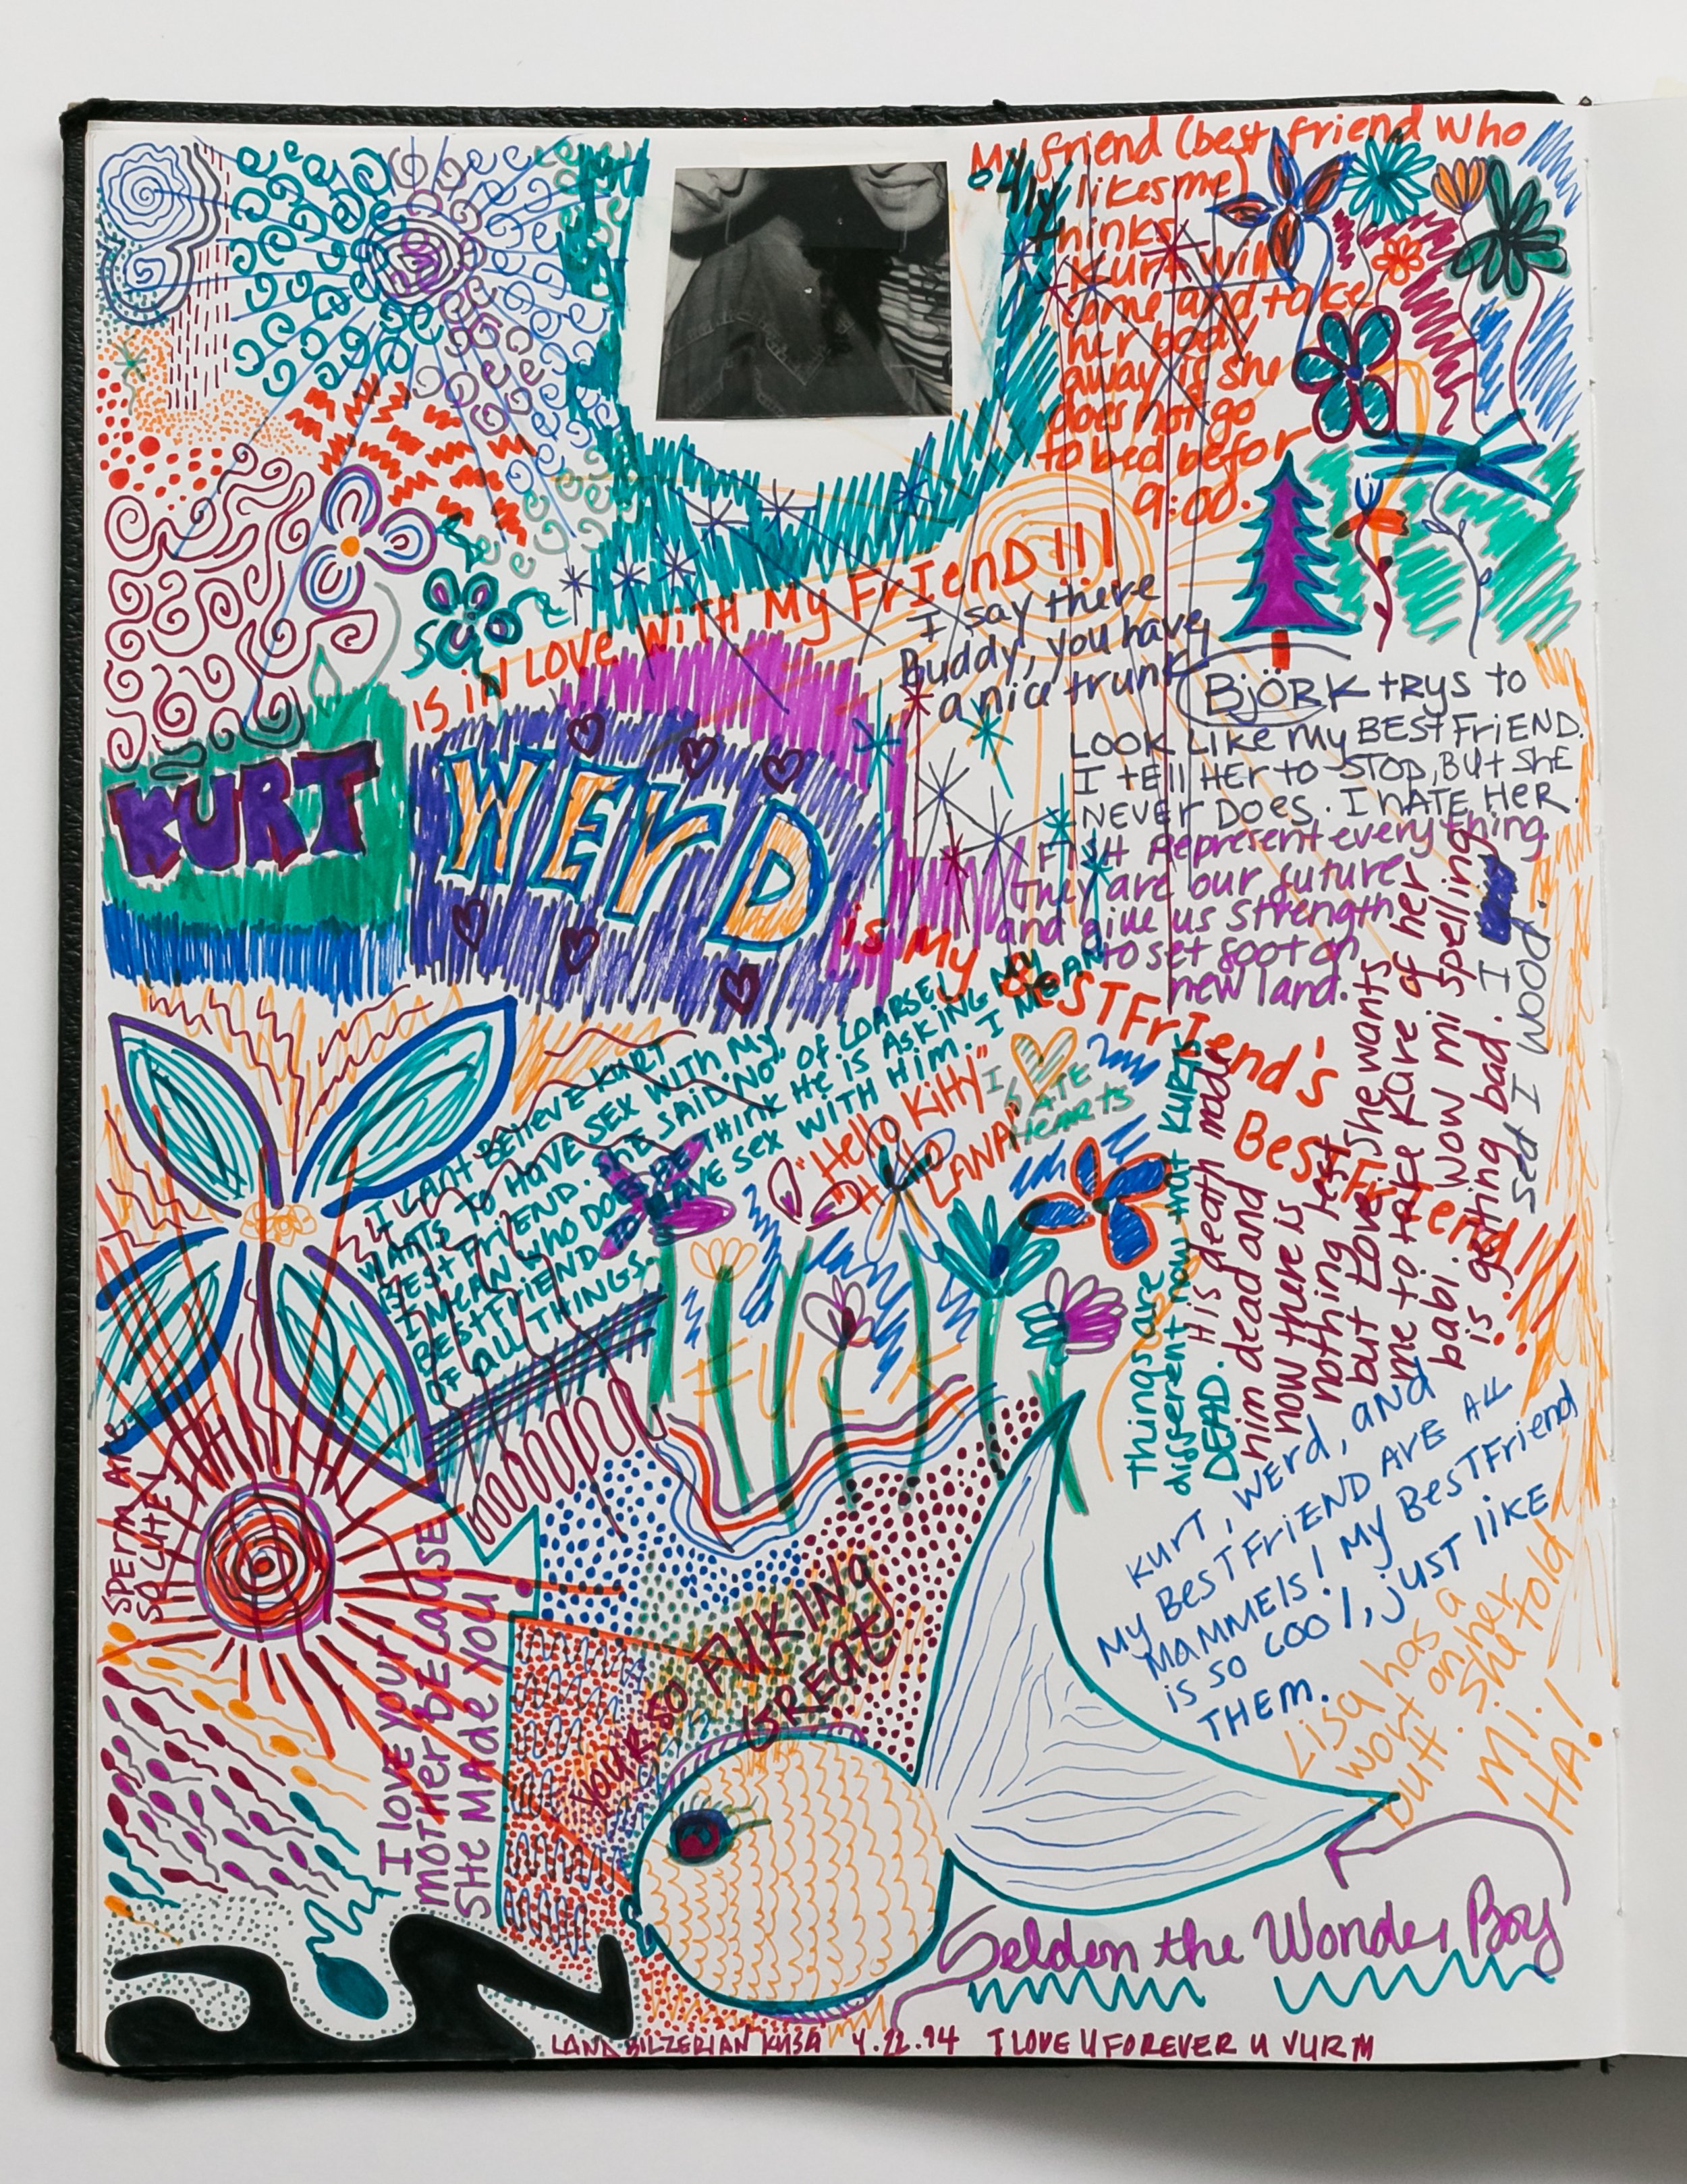 My friend (best friend who
only likes me)
thinks
Kurt will
come and take
her body
away if she
does not go
to bed befor
9:00.
KURT
IS IN LOVE WITH MY FrIenD!!!
I say there
Buddy, you have
a nice trunk
BJÖRK trys to
LOOK Like my BEST FriEND.
I tEll HER to STOP, BUt SHE
NEVEr DOES. I hATE HER.
FISH Represent everything
They are our future
and give us strength
to set foot on
new land.
WErD
is My BeST FrIend's
BeST FrIend!!!
I CANT BElIEVE KURT
WANTS TO HAVE SEX WITH MY
BEST FriEND. SHE SAID "NO" OF COARSE!
I MEAN WHO DOES HE THINK HE IS ASKING MY
BESTFriEND TO HAVE SEX WITH HIM. I MEAN
OF All THINGS.
"Hello Kitty"
"Hello
LANA"
I
HATE
Hearts
Things are
different now that KURTS
DEAD.
His death made
him dead and
now there is
nothing left
but Love! She wants
me to take Kare of her
babi. Wow mi spelling
is getting bad. I
sed I wood.
FUCK
SPERM ARE
SO CUTE!
I love your
motHer BE cause
SHE MADE YOU
Your SO FUKING
GREAt
KurT, WErd, AND
My BEST FriEND ARE All
MAMMElS! My BesTFriend
is so cool, just liKE
THEM.
Lisa has a
wort on her
butt. She told
Mi.
HA!
Selden the Wonder Boy
LANA BILZERIAN KUSA 4.22.94 I LOVE U FOREVER U VURM